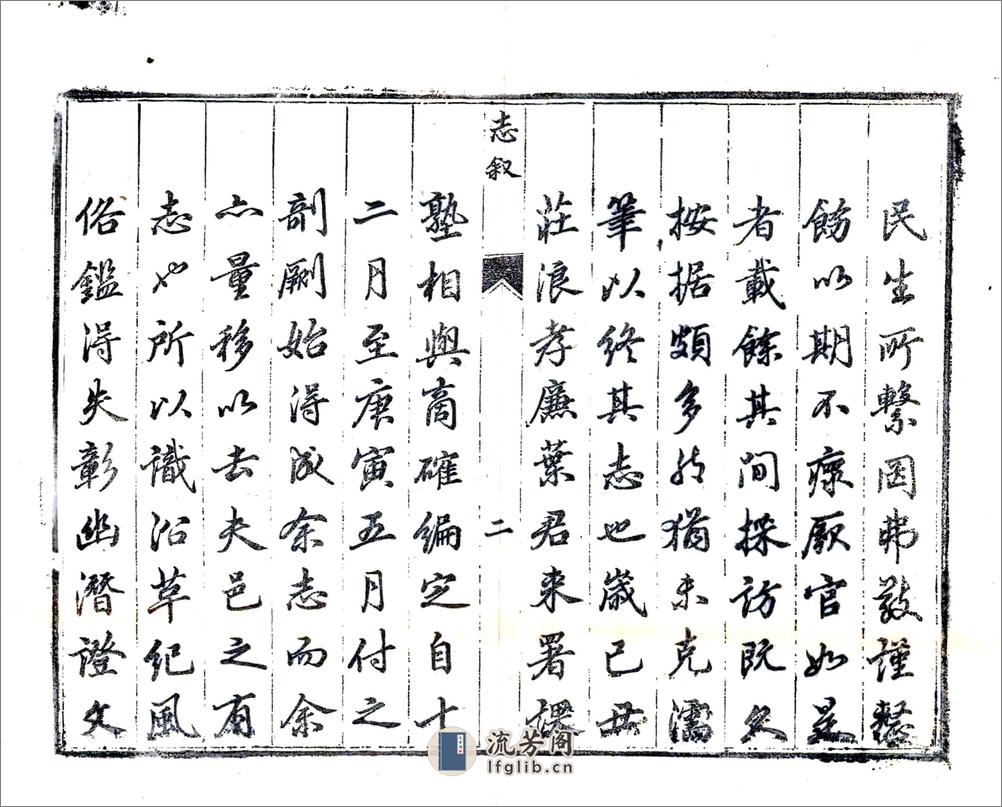 民生所繫罔弗敬謹整
飭以期不瘝厥官如是
者載餘其間採訪既久
按据頗多然猶未克濡
筆以終其志也歲己丑
莊浪孝廉葉君来署課
志叙
二
塾相與商確編定自十
二月至庚寅五月付之
剞劂始得成余志而余
亦量移以去夫邑之有
志也所以識沿革紀風
俗鑑得失彰幽潛證文
流芳阁
lfglib.cn